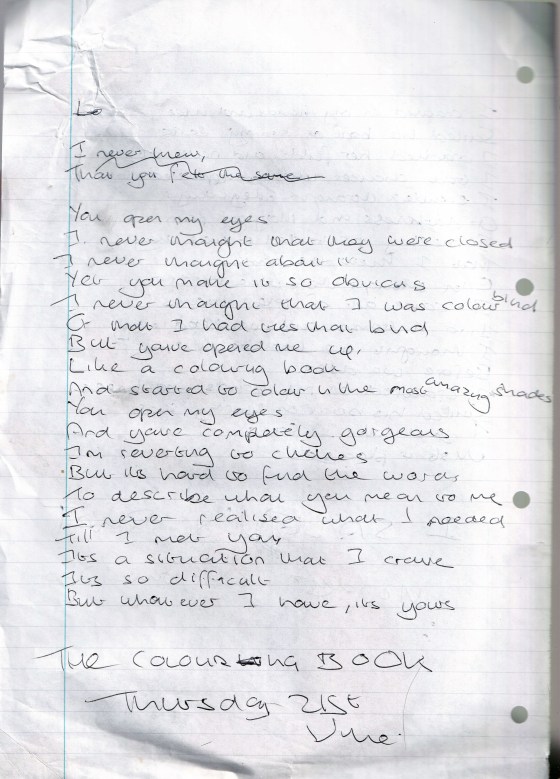 Lo
I never knew,
That you felt the same
You open my eyes
I never thought that they were closed
I never thought about it
Yet you make it so obvious
I never thought that I was colour blind
Or that I had ties that bind
But you've opened me up,
Like a colouring book
And started to colour in the most amazing shades
You open my eyes
And you're completely gorgeous
I'm reverting to cliches
But its hard to find the words
To describe what you mean to me
I never realised what I needed
Till I met you
Its a situation that I crave
Its so difficult
But whatever I have, its yours
THE COLOURING BOOK
Thursday 21st